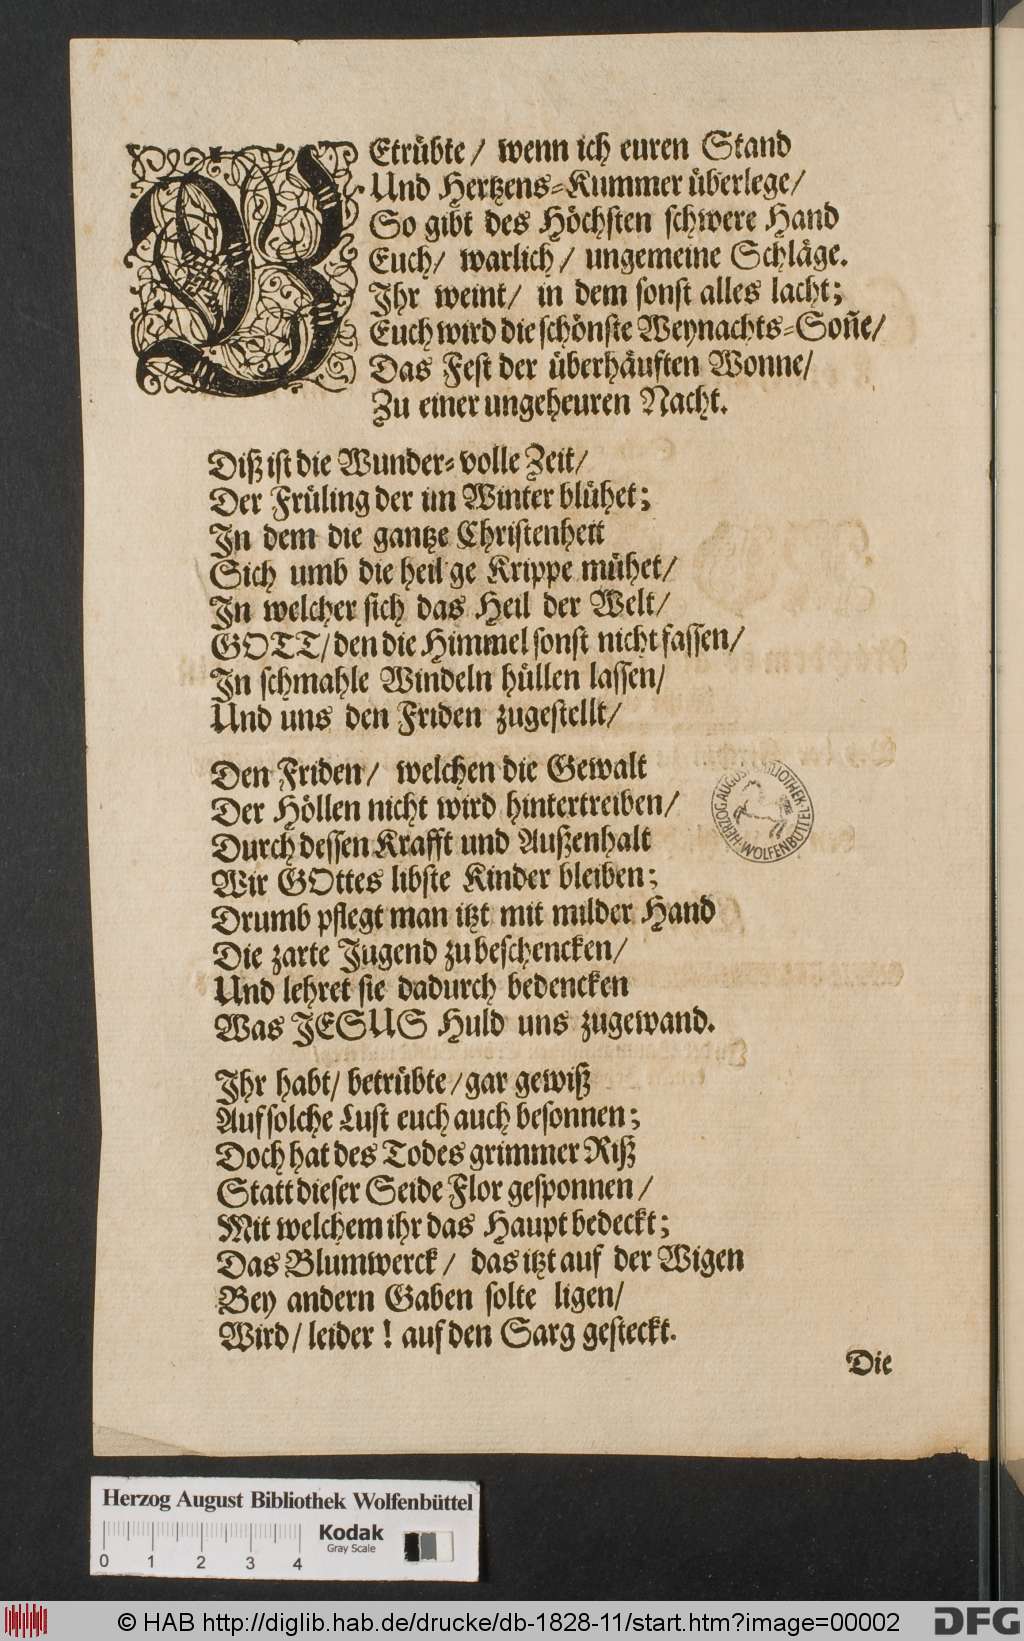 BEtrübte/ wenn ich euren Stand
Und Hertzens-Kummer überlege/
So gibt des Höchsten schwere Hand
Euch/ warlich/ ungemeine Schläge.
Ihr weint/ in dem sonst alles lacht;
Euch wird die schönste Weynachts-Soñe/
Das Fest der überhäuften Wonne/
Zu einer ungeheuren Nacht.
Diß ist die Wunder-volle Zeit/
Der Früling der im Winter blühet;
In dem die gantze Christenheit
Sich umb die heil'ge Krippe mühet/
In welcher sich das Heil der Welt/
GOTT/ den die Himmel sonst nicht fassen/
In schmahle Windeln hüllen lassen/
Und uns den Friden zugestellt/
Den Friden/ welchen die Gewalt
Der Höllen nicht wird hintertreiben/
Durch dessen Krafft und Außenhalt
Wir GOttes libste Kinder bleiben;
Drumb pflegt man itzt mit milder Hand
Die zarte Jugend zu beschencken/
Und lehret sie dadurch bedencken
Was JESUS Huld uns zugewand.
Ihr habt/ betrübte/ gar gewiß
Auf solche Lust euch auch besonnen;
Doch hat des Todes grimmer Riß
Statt dieser Seide Flor gesponnen/
Mit welchem ihr das Haupt bedeckt;
Das Blumwerck/ das itzt auf der Wigen
Bey andern Gaben solte ligen/
Wird/ leider! auf den Sarg gesteckt.
Die
HERZOG AUGUST BIBLIOTHEK WOLFENBÜTTEL
Herzog August Bibliothek Wolfenbüttel
Kodak
Gray Scale
0 1 2 3 4
© HAB http://diglib.hab.de/drucke/db-1828-11/start.htm?image=00002
DFG